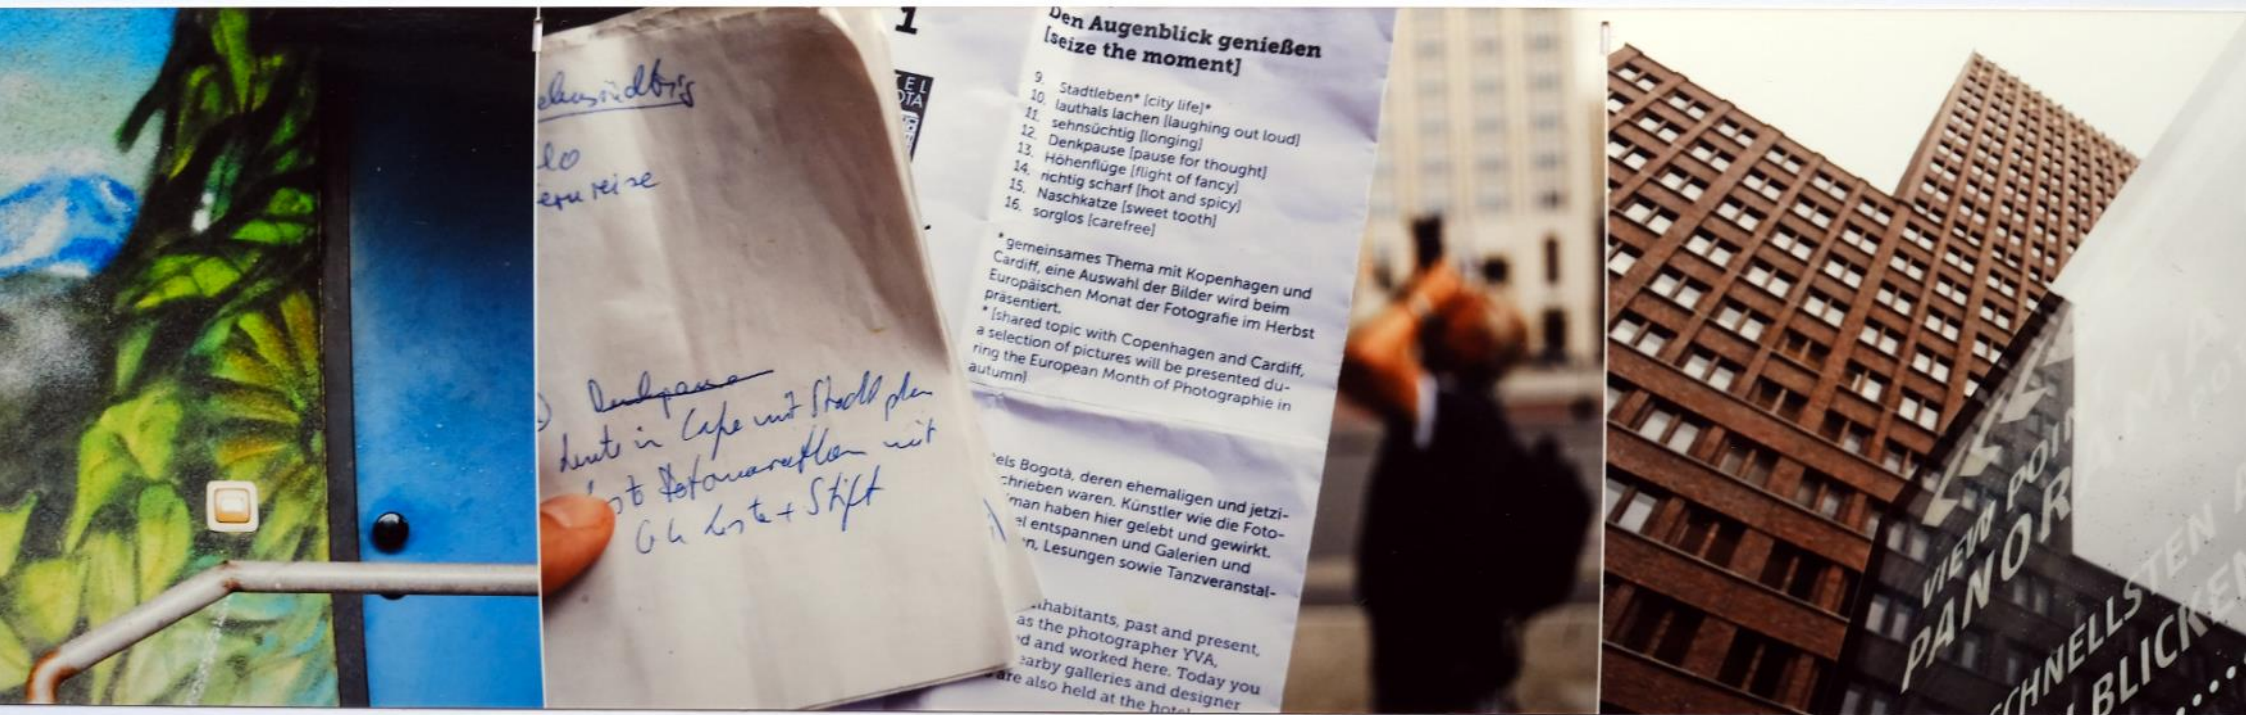 lo
ernreise
Denkpause
Leute in Cafe mit Stadtplan
Fotomarathon mit
Liste + Stift
1
EL
OTA
Den Augenblick genießen
[seize the moment]
9. Stadtleben* [city life]*
10. lauthals lachen [laughing out loud]
11. sehnsüchtig [longing]
12. Denkpause [pause for thought]
13. Höhenflüge [flight of fancy]
14. richtig scharf [hot and spicy]
15. Naschkatze [sweet tooth]
16. sorglos [carefree]
* gemeinsames Thema mit Kopenhagen und
Cardiff, eine Auswahl der Bilder wird beim
Europäischen Monat der Fotografie im Herbst
präsentiert.
* [shared topic with Copenhagen and Cardiff,
a selection of pictures will be presented du-
ring the European Month of Photographie in
autumn]
els Bogotà, deren ehemaligen und jetzi-
chrieben waren. Künstler wie die Foto-
man haben hier gelebt und gewirkt.
el entspannen und Galerien und
n, Lesungen sowie Tanzveranstal-
nhabitants, past and present,
as the photographer YVA,
d and worked here. Today you
earby galleries and designer
are also held at the hotel
VIEW POIN
PANORAMA
CHNELLSTEN
BLICKE